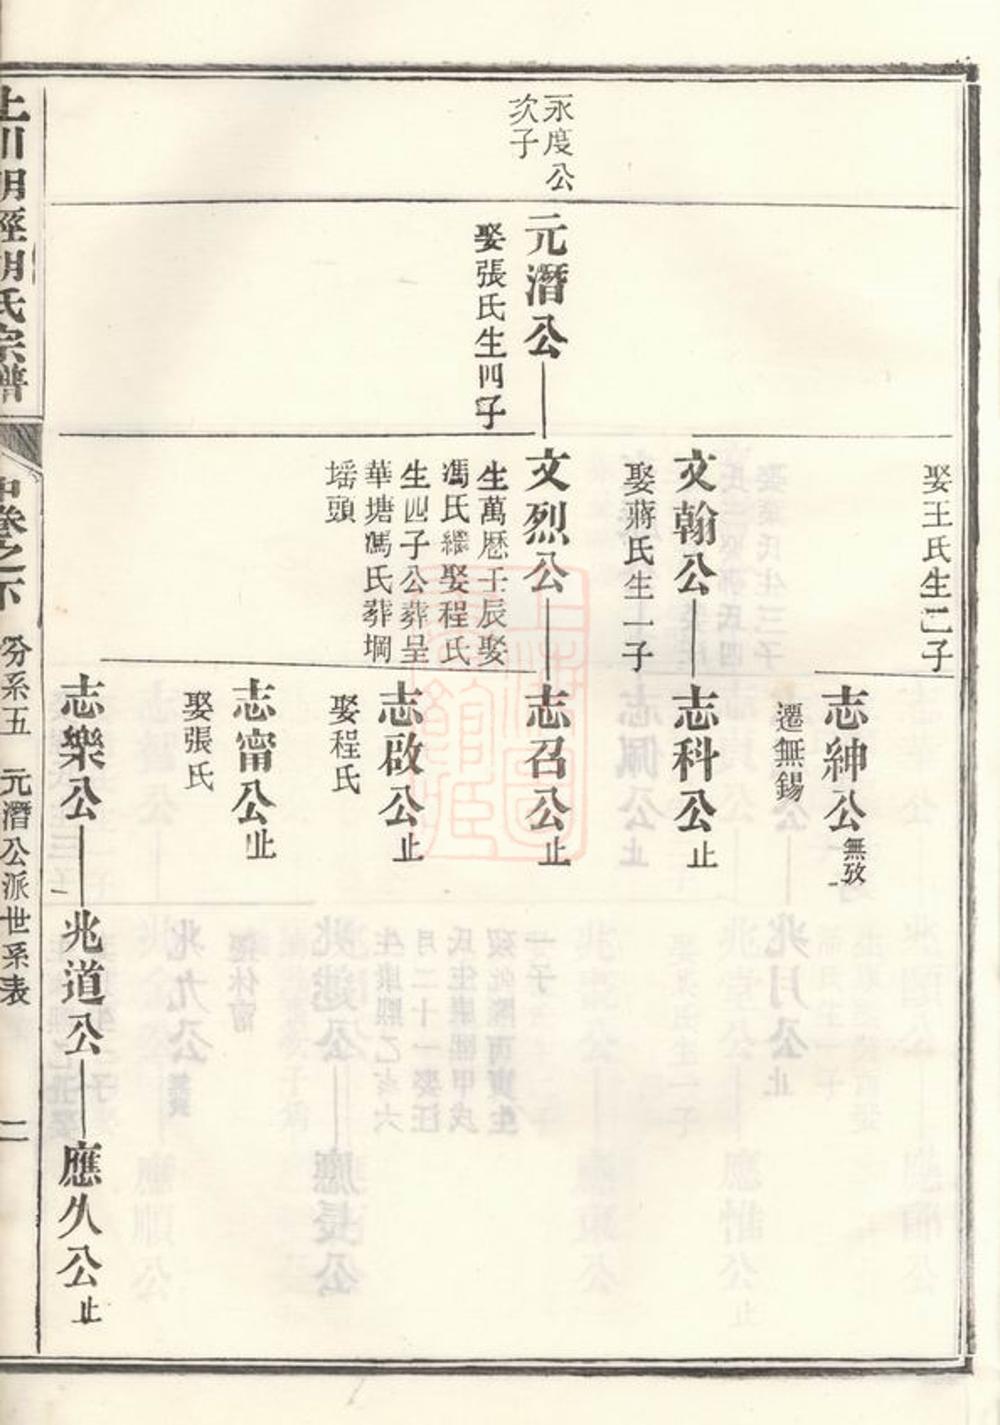 娶王氏生二子
志紳公
無攷
遷無錫
文翰公
娶蔣氏生一子
志科公
止
永度公
次子
元潛公
娶張氏生四子
文烈公
生萬厯壬辰娶
馮氏繼娶程氏
生四子公葬呈
華塘馮氏葬堈
塔頭
志召公
止
志啟公
止
娶程氏
志甯公
止
娶張氏
志樂公
兆道公
應久公
止
上川明經胡氏宗譜
中卷之下
分系五 元潛公派世系表
二